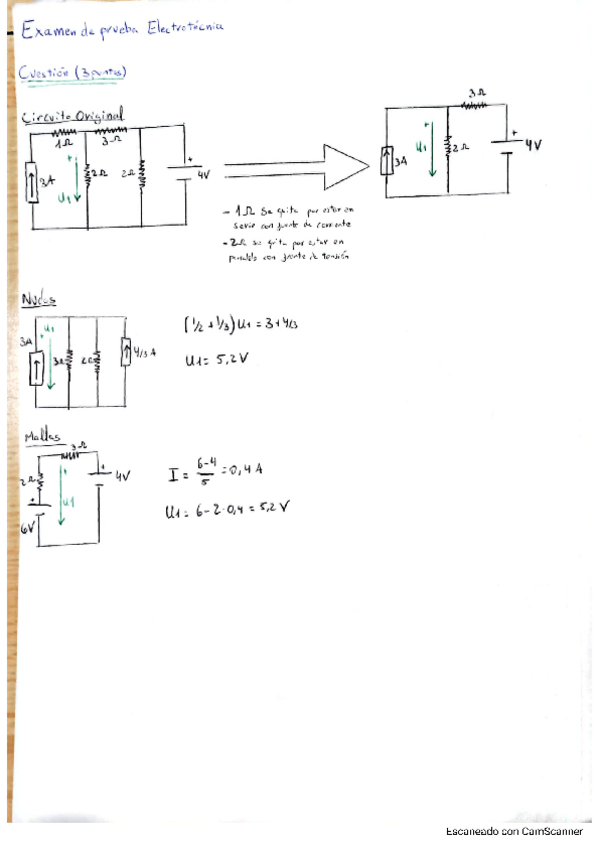 Examen de prueba Electrotecnia
Cuestión (3 puntos)
Circuito Original
1Ω 3Ω
3A U1 + 2Ω 2Ω + 4V
3Ω
3A + U1 2Ω + 4V
- 1Ω se quita por estar en
serie con fuente de corriente
- 2Ω se quita por estar en
paralelo con fuente de tensión
Nudos
3A + U1 3Ω 2Ω 4/3 A
(1/2 + 1/3) U1 = 3 + 4/3
U1 = 5,2 V
Mallas
3Ω
2Ω + 6V + U1 + 4V
I = 6-4/5 = 0,4 A
U1 = 6 - 2·0,4 = 5,2 V
Escaneado con CamScanner